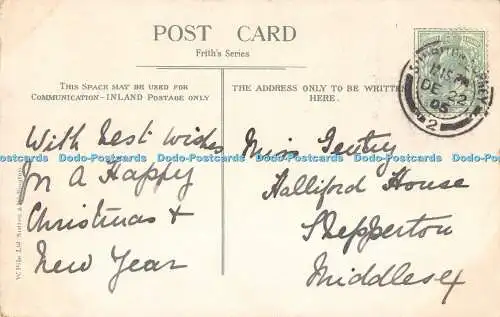 POST CARD
Frith's Series
THIS SPACE MAY BE USED FOR
COMMUNICATION - INLAND POSTAGE ONLY
With best wishes
for a Happy
Christmas &
New Year
THE ADDRESS ONLY TO BE WRITTEN
HERE.
Miss Gentry
Halliford House
Shepperton
Middlesex
DE 22
05
2
Dodo-Postcards Dodo-Postcards Dodo-Postcards Dodo-Postcards Dodo-Postcards Dodo-Postcards